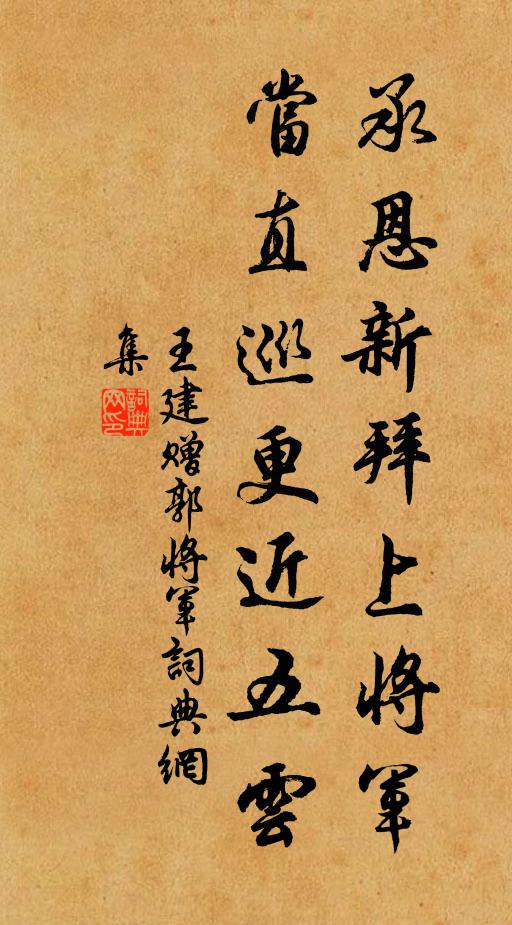 承恩新拜上將軍
當直巡更近五雲
王建贈郭將軍詞典網
集
詞典
網印